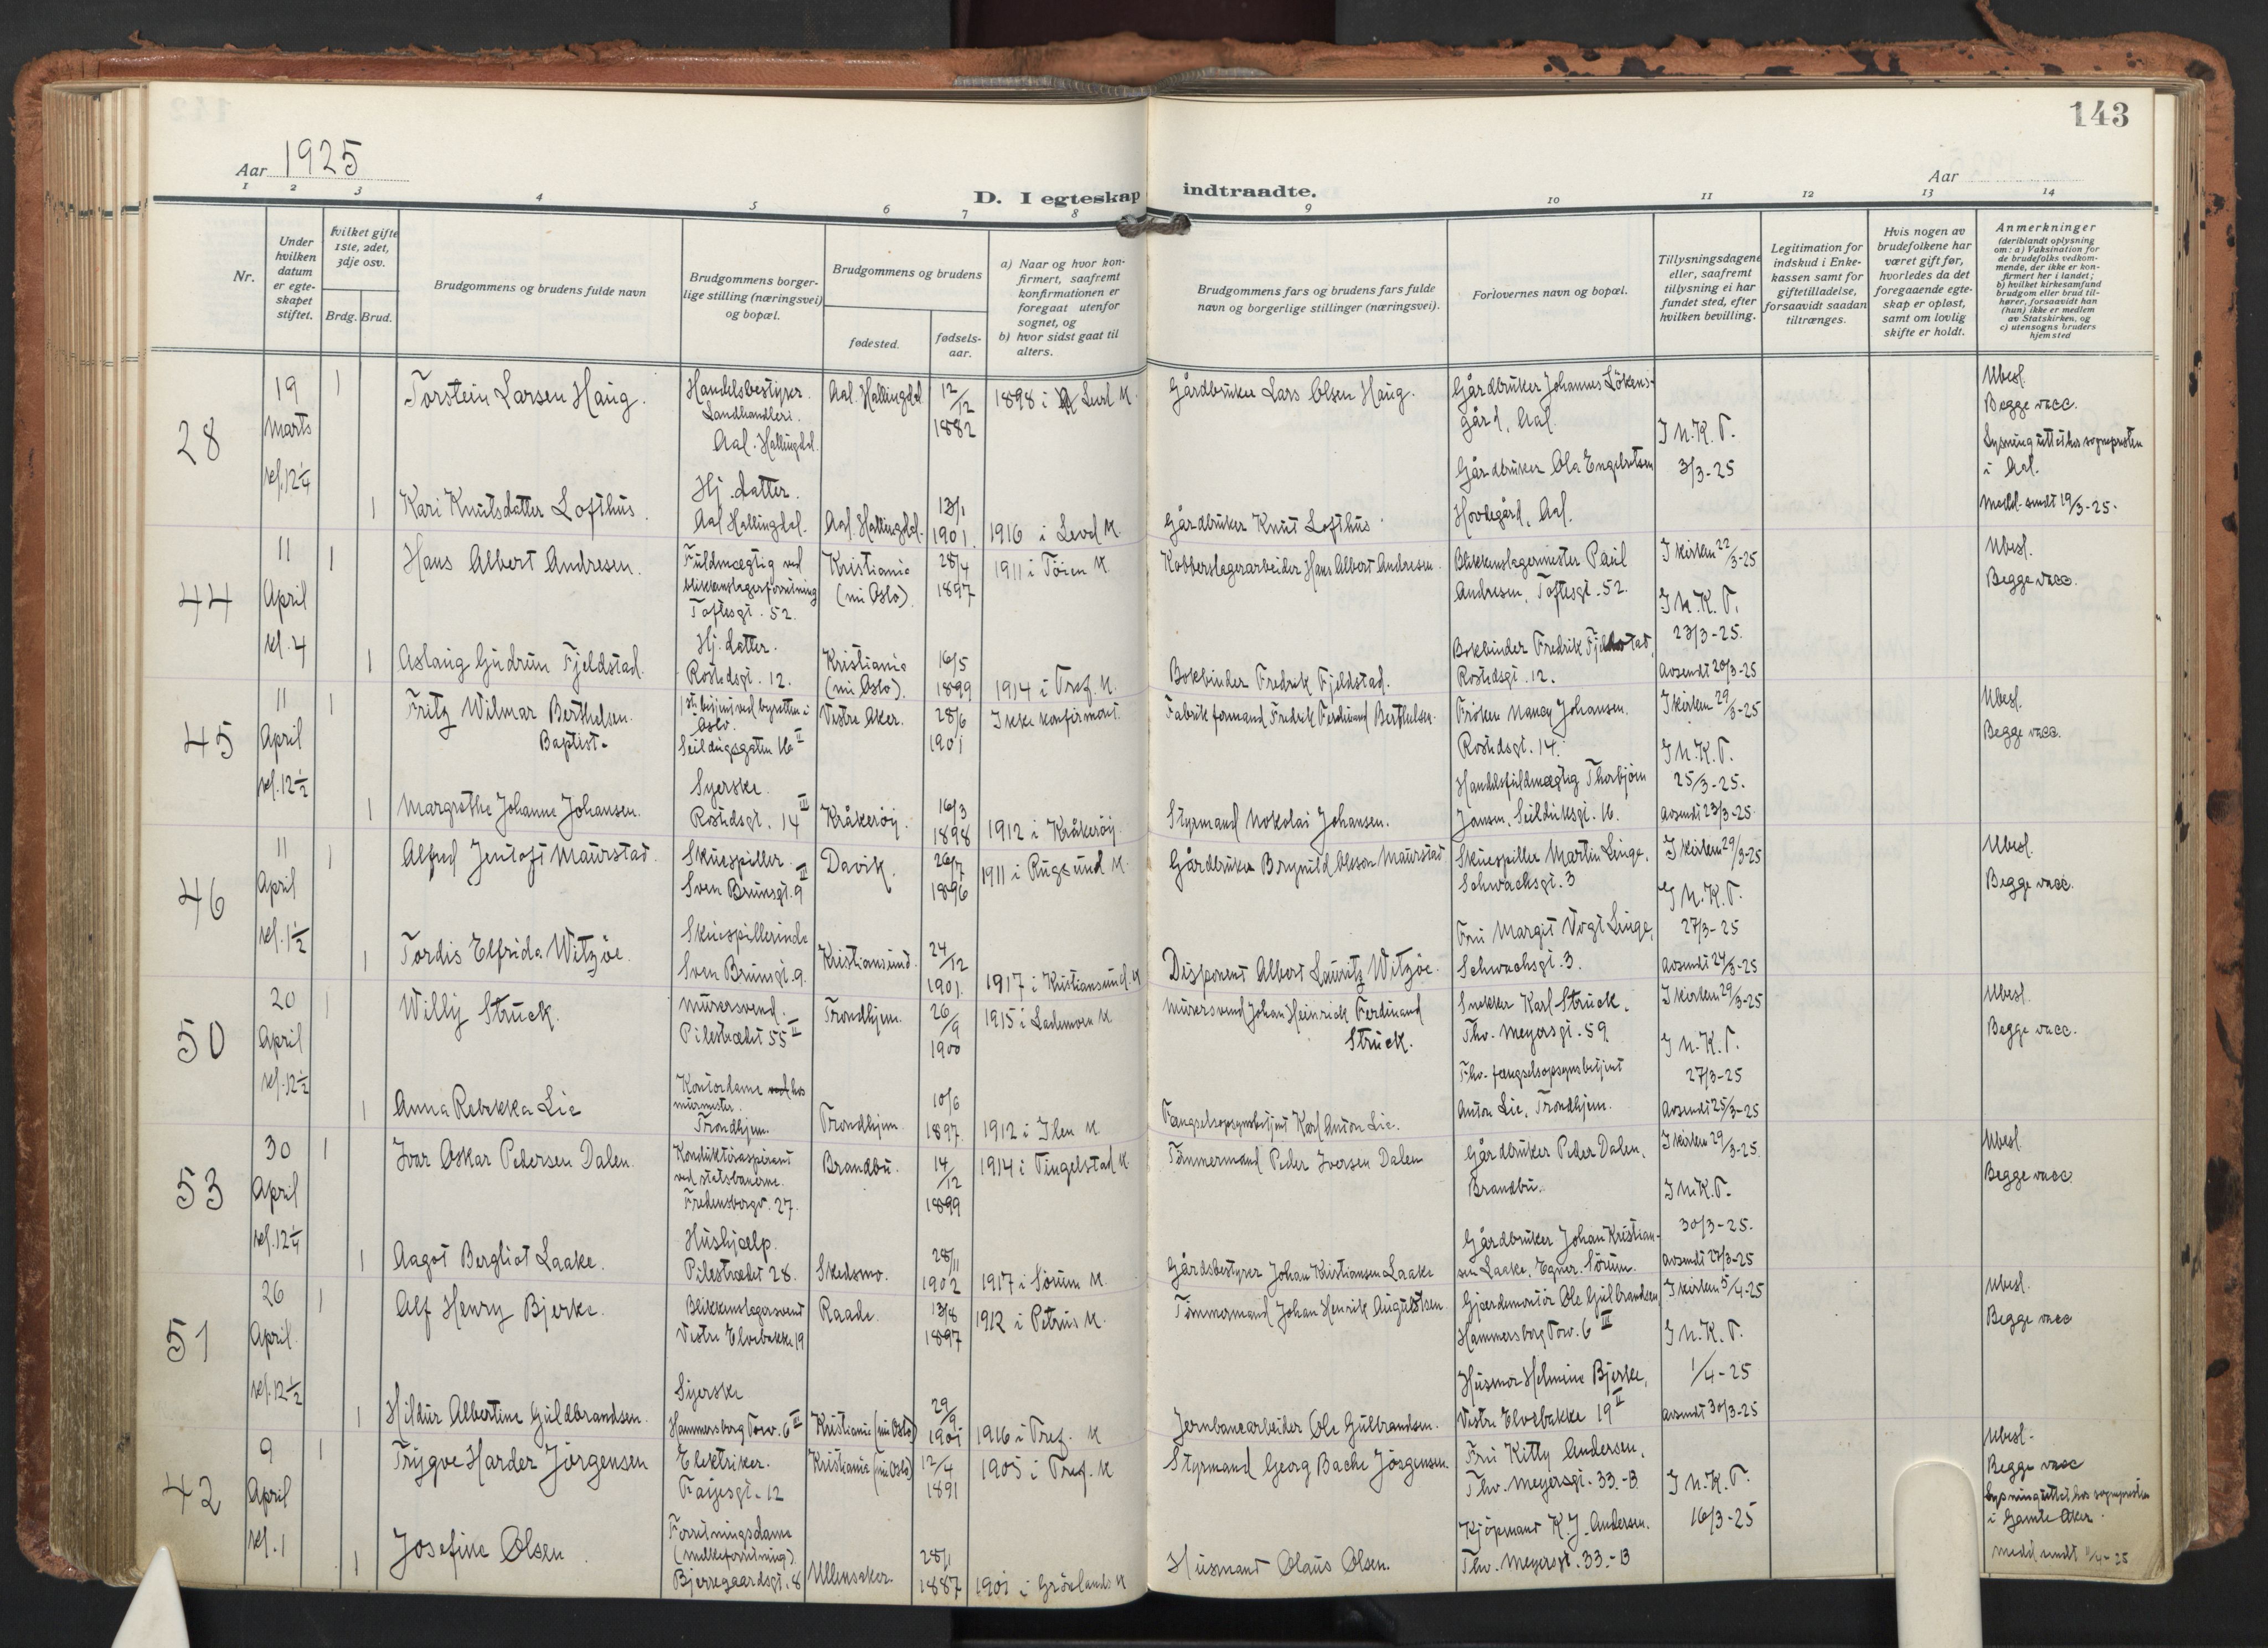 143
Aar 1925
Aar
D. I egteskap indtraadte.
1 2 3 4 5 6 7 8 9 10 11 12 13 14
Nr.
Under hvilken datum er egteskapet stiftet.
Hvilket gifte 1ste, 2det, 3dje osv.
Brdg. Brud.
Brudgommens og brudens fulde navn
Brudgommens borgerlige stilling (næringsvei) og bopæl.
Brudgommens og brudens
fødested.
fødselsaar.
a) Naar og hvor konfirmert, saafremt konfirmationen er foregaat utenfor sognet, og
b) hvor sidst gaat til alters.
Brudgommens fars og brudens fars fulde navn og borgerlige stillinger (næringsvei).
Forlovernes navn og bopæl.
Tillysningsdagene eller, saafremt tillysning ei har fundet sted, efter hvilken bevilling.
Legitimation for indskud i Enkekassen samt for giftetilladelse, forsaavidt saadan tiltrænges.
Hvis nogen av brudefolkene har været gift før, hvorledes da det foregaaende egteskap er opløst, samt om lovlig skifte er holdt.
Anmerkninger
(deriblandt oplysning om: a) Vaksination for de brudefolks vedkommende, der ikke er konfirmert her i landet;
b) hvilket kirkesamfund brudgom eller brud tilhører, forsaavidt han (hun) ikke er medlem av Statskirken, og
c) utensogns bruders hjemsted
28
19 Marts kl. 12 1/4
1
Torstein Larsen Haug.
Handelsbestyrer. Landhandleri. Aal. Hallingdal.
Aal. Hallingdal
12/12 1882
1898 i Leved K.
Gårdbruker Lars Olsen Haug.
Gårdbruker Johannes Lökensgård, Aal.
I N.K.T. 3/3-25
Ubesl.
Begge vacc.
Lysning uttat hos sognepresten i Aal.
Medd. sendt 19/3-25.
1
Kari Knutsdatter Lofthus.
Hj. datter. Aal Hallingdal.
Aal. Hallingdal.
13/1 1901.
1916 i Leved K.
Gårdbruker Knut Lofthus.
Gårdbruker Ola Engebretsen Hovdegård, Aal.
44
11 April kl. 4
1
Hans Albert Andresen.
Fuldmægtig ved blikkenslagerforretning Toftesgt. 52.
Kristiania (nu Oslo).
28/4 1897
1911 i Töien K.
Kobberslagerarbeider Hans Albert Andresen.
Blikkenslagermester Paul Andresen, Toftesgt. 52.
I kirken 22/3-25
I N.K.T. 23/3-25.
Avsendt 20/3-25
Ubesl.
Begge vacc.
1
Aslaug Gudrun Fjeldstad.
Hj. datter. Rostedsgt. 12.
Kristiania (nu Oslo).
16/5 1899
1914 i Tref. K.
Bokbinder Fredrik Fjeldstad.
Bokbinder Fredrik Fjeldstad, Rostedsgt. 12.
45
11 April kl. 12 1/2
1
Fritz Wilmar Berthelsen. Baptist.
ved byretten i Oslo. Seilduksgaten 16 II
Vestre Aker.
28/6 1901
Ikke konfirmert.
Fabrikformand Fredrik Ferdinand Berthelsen.
Fröken Nancy Johansen. Rostedsgt. 14.
I kirken 29/3-25
I N.K.T. 25/3-25.
Avsendt 23/3-25.
Ubesl.
Begge vacc.
1
Margrethe Johanne Johansen.
Syerske. Rostedsgt. 14 III
Kråkeröy.
16/3 1898
1912 i Kråkeröy.
Styrmand Nokolai Johansen.
Handelsfuldmægtig Thorbjörn Jonsen, Seilduksgt. 16.
46
11 April kl. 1 1/2
1
Alfred Jentoft Maurstad.
Skuespiller. Sven Brunsgt. 9 III
Davik.
26/7 1896
1911 i Rugsund K.
Gårdbruker Brynild Olsson Maurstad
Skuespiller Martin Linge, Schwachsgt. 3
I kirken 29/3-25
I N.K.T. 27/3-25
Avsendt 24/3-25
Ubesl.
Begge vacc.
1
Tordis Elfrida Witzöe.
Skuespillerinde Sven Brunsgt. 9.
Kristiansund.
24/12 1901.
1917 i Kristiansund. K
Disponent Albert Lauritz Witzöe.
Fru Margit Vogt Linge, Schwachsgt. 3.
50
20 April kl. 12 1/2
1
Willy Struck.
Murersvend. Pilestrædet 55 II
Trondhjem.
26/9 1900
1915 i Lademoen K
Murersvend Johan Heinrich Ferdinand Struck.
Snekker Karl Struck, Thv. Meyersgt. 59
I kirken 29/3-25
I N.K.T. 27/3-25
Avsendt 25/3-25
Ubesl.
Begge vacc.
1
Anna Rebekka Lie
Kontordame ved hos murmester. Trondhjem.
Trondhjem.
10/6 1897.
1912 i Ilen K
Fængselsopsynsbetjent Karl Anton Lie.
Fhv. fængselsopsynsbetjent Anton Lie, Trondhjem.
53
30 April kl. 12 1/4
1
Ivar Oskar Pedersen Dalen.
Konduktöraspirant ved statsbanerne. Fredensborgv. 27.
Brandbu.
14/12 1899
1914 i Tingelstad K
Tömmermand Peder Iversen Dalen
Gårdbruker Peder Dalen, Brandbu.
I kirken 29/3-25
I N.K.T. 30/3-25.
Avsendt 27/3-25
Ubesl.
Begge vacc.
1
Aagot Bergliot Laake.
Hushjælp. Pilestrædet 28.
Skedsmo.
28/11 1902
1917 i Sörum K.
Gårdsbestyrer Johan Kristiansen Laake
Gårdbruker Johan Kristiansen Laake, Egner. Sörum.
51
26 April. kl. 12 1/2
1
Alf Henry Bjerke.
Blikkenslagersvend Vestre Elvebakke 19
Raade.
13/8 1897
1912 i Petrus K.
Tömmermand Johan Henrik Augustsen.
Gjærdemontör Ole Gulbrandsen, Hammersborg Torv. 6 III
I kirken 5/4-25
I N.K.T. 1/4-25
Avsendt 30/3-25
Ubesl.
Begge vacc
1
Hildur Albertine Guldbrandsen.
Syerske Hammersborg Torv. 6 III
Kristiania (nu Oslo)
29/9 1901
1916 i Tref. K
Jernbanearbeider Ole Gulbrandsen.
Husmor Helmine Bjerke, Vestre Elvebakke 19 II
42
9 April kl. 1
1
Trygve Harder Jörgensen
Elektriker. Fayesgt. 12
Kristiania (nu Oslo)
12/4 1891
1905 i Tref. K
Styrmand Georg Bache Jörgensen.
Fru Kitty Andersen, Thv. Meyersgt. 33.-B
I N.K.T. 16/3-25
Ubesl.
Begge vacc
Lysning uttat hos sognepresten i Gamle Aker.
Medd. sendt 11/4-25
1
Josefine Olsen.
Forretningsdame (melkeforretning). Bjerregaardsgt. 8
Ullensaker.
28/1 1887
1901 i Grönlands K
Husmand Olaus Olsen.
Kjöpmand K.J. Andersen. Thv. Meyersgt. 33.-B